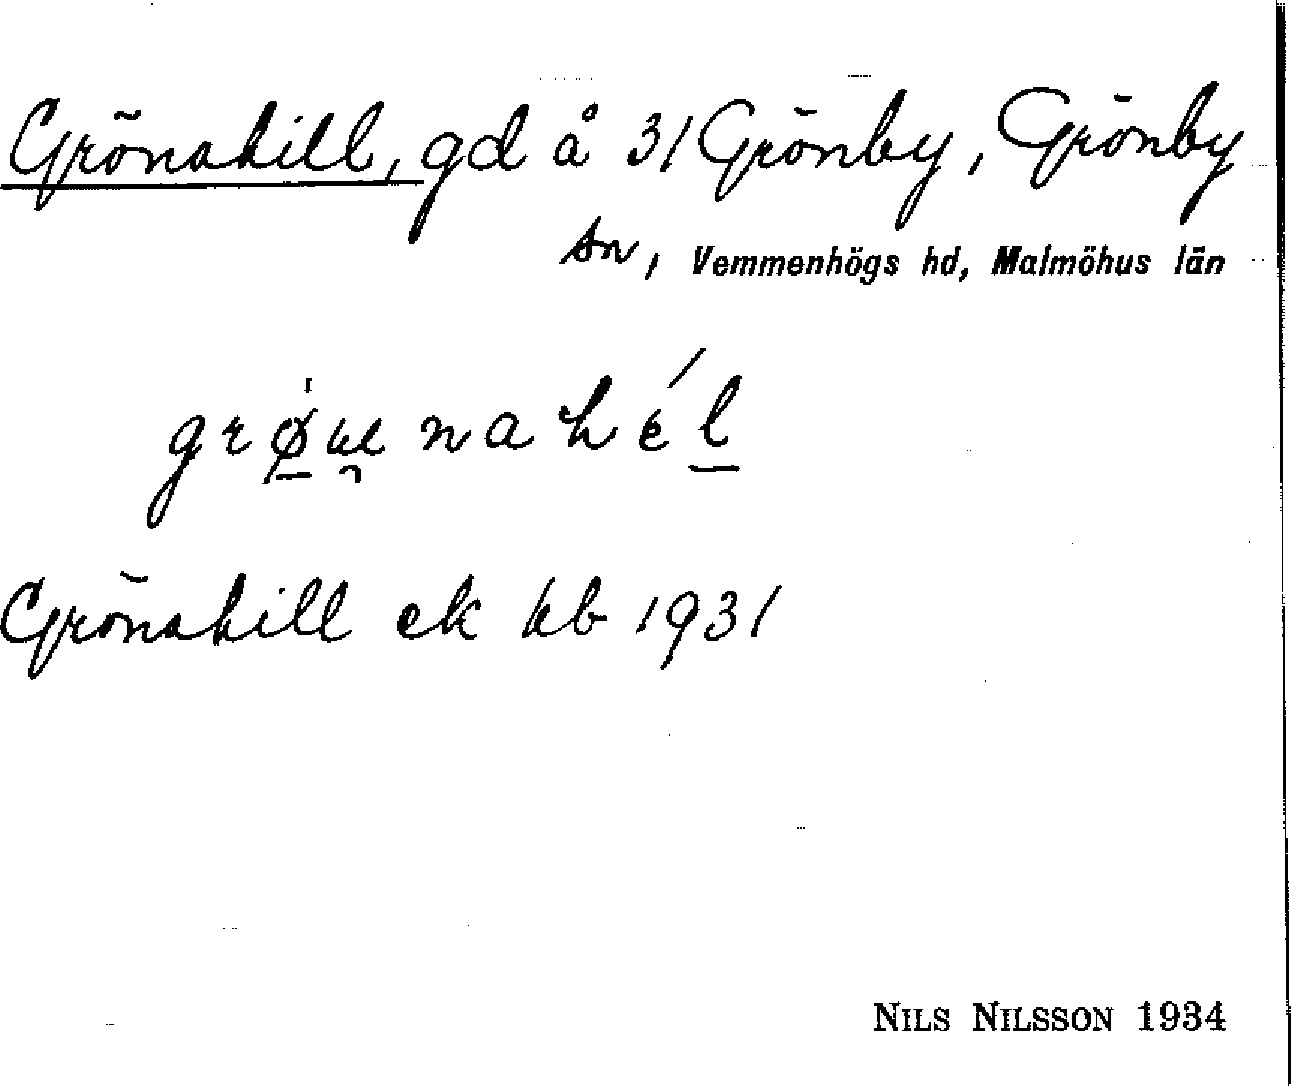 Grönahill, gd å 31 Grönby, Grönby
sn, Vemmenhögs hd, Malmöhus län
Grönahill ek kb 1931
NILS NILSSON 1934